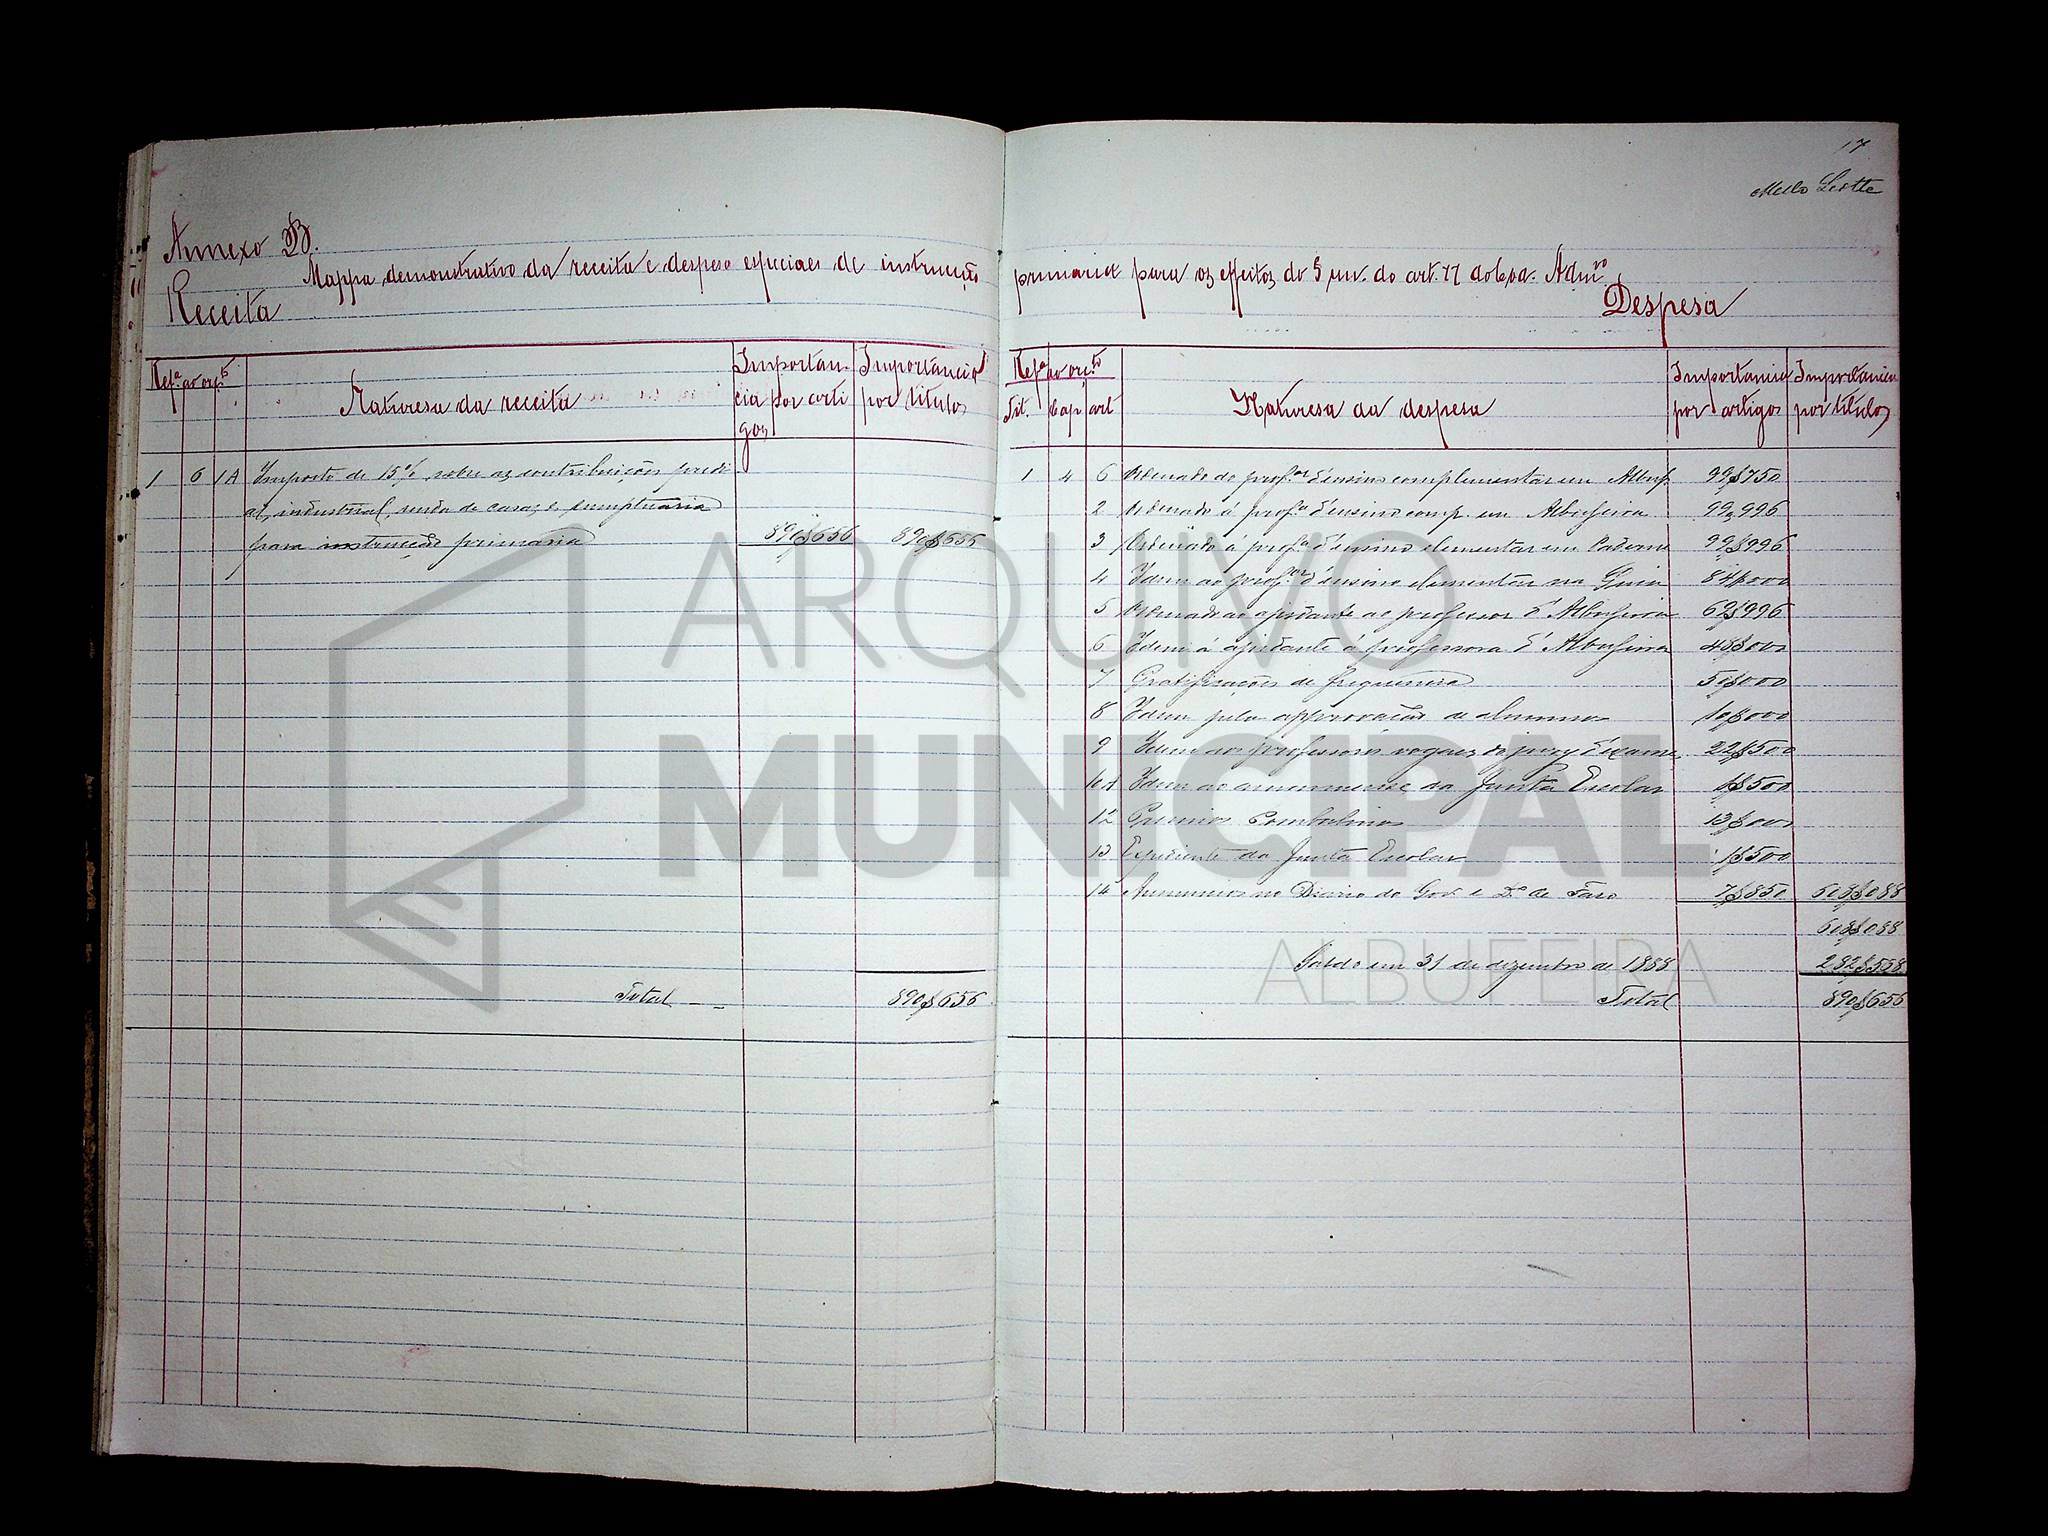 17
Mello Leotte
Annexo B.
Mappa demonstrativo da receita e despesa especiaes de instrucção primaria para os effeitos do § un. do art. 77 do Cod. Admvo
Receita
Despesa
Refa ao orto
Naturesa da receita
Importan-
cia por arti
gos
Importancia
por titulos
1 6 1A Imposto de 15%, sobre as contribuições predi
al, industrial, renda de casas e sumptuaria
para instrucção primaria 890$656 890$656
Total 890$656
Refa ao orto
Tit. Cap art
Naturesa da despesa
Importancia
por artigos
Importancia
por titulos
1 4 6 Ordenado do profor d'ensino complementar em Albufa 99$750
2 Ordenado á profa d'ensino comp. em Albufeira 99$996
3 Ordenado á profa d'ensino elementar em Paderne 99$996
4 Idem ao profor d'ensino elementar na Guia 84$000
5 Ordenado ao ajudante ao professor d'Albufeira 69$996
6 Idem á ajudante á professora d'Albufeira 48$000
7 Gratificações de frequencia 50$000
8 Idem pela approvação de alumnos 10$000
9 Idem aos professores vogaes do jury d'exames 22$500
10A Idem ao amanuense da Junta Escolar 1$500
12 Premios Pombalinos 13$000
13 Expediente da Junta Escolar 1$500
14 Annuncios no Diario do Gov. e Do de Faro 7$850 608$088
608$088
Saldo em 31 de dezembro de 1888 282$568
Total 890$656
ARQUIVO
MUNICIPAL
ALBUFEIRA